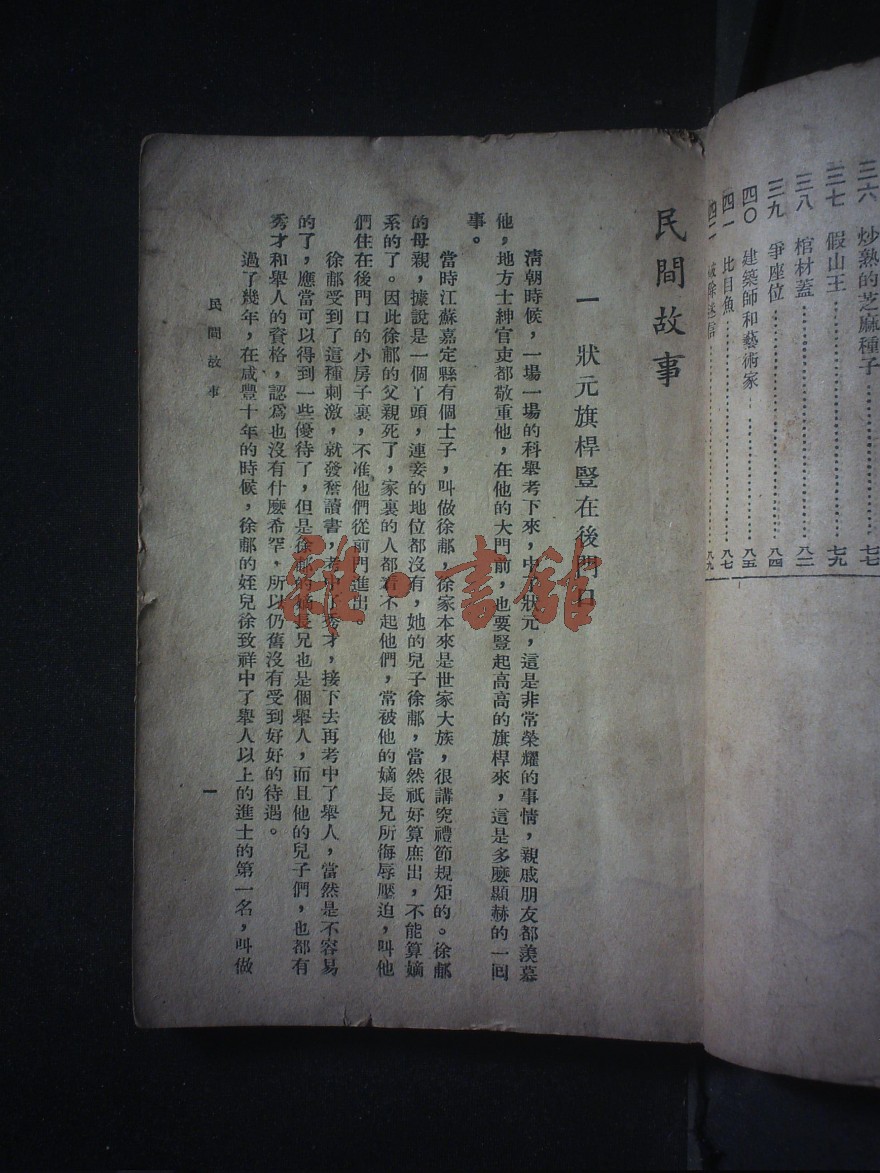 三六 炒熟的芝麻種子……七七
三七 假山王……七九
三八 棺材蓋……八二
三九 爭座位……八四
四〇 建築師和藝術家……八五
四一 比目魚……八七
四二 ……八九
民間故事
一 狀元旗桿豎在後門口
清朝時候，一場一場的科舉考下來，中了狀元，這是非常榮耀的事情，親戚朋友都羨慕
他，地方士紳官吏都敬重他，在他的大門前，也要豎起高高的旗桿來，這是多麼顯赫的一回
事。
當時江蘇嘉定縣有個士子，叫做徐郙，徐家本來是世家大族，很講究禮節規矩的。徐郙
的母親，據說是一個丫頭，連妾的地位都沒有，她的兒子徐郙，當然祇好算庶出，不能算嫡
系的了。因此徐郙的父親死了，家裏的人都看不起他們，常被他的嫡長兄所侮辱壓迫，叫他
們住在後門口的小房子裏，不准他們從前門進出。
徐郙受到了這種刺激，就發奮讀書，考中了秀才，接下去再考中了舉人，當然是不容易
的了，應當可以得到一些優待了，但是徐郙的嫡長兄也是個舉人，而且他的兒子們，也都有
秀才和舉人的資格，認爲也沒有什麼希罕，所以仍舊沒有受到好好的待遇。
過了幾年，在咸豐十年的時候，徐郙的姪兒徐致祥中了舉人以上的進士的第一名，叫做
民間故事
一
雜·書館